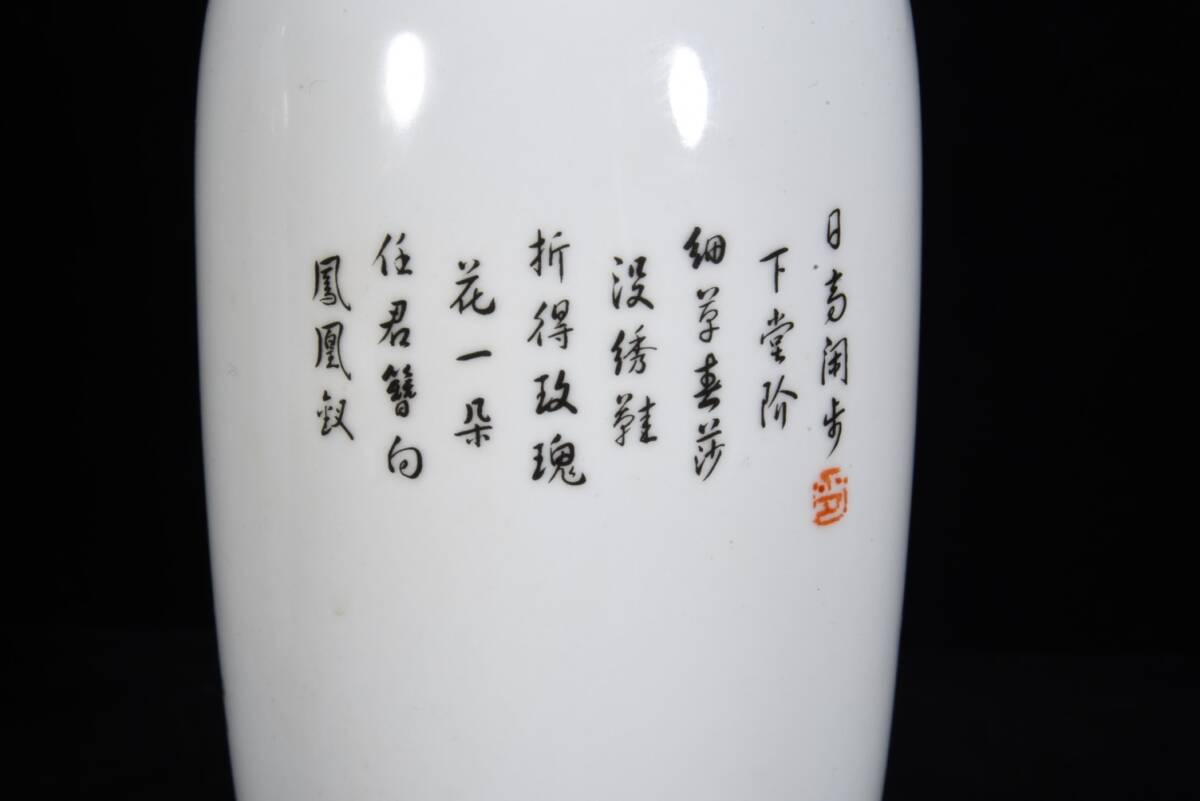 日高闲步
下堂阶
细草春莎
没绣鞋
折得玫瑰
花一朵
任君簪向
鳳凰釵